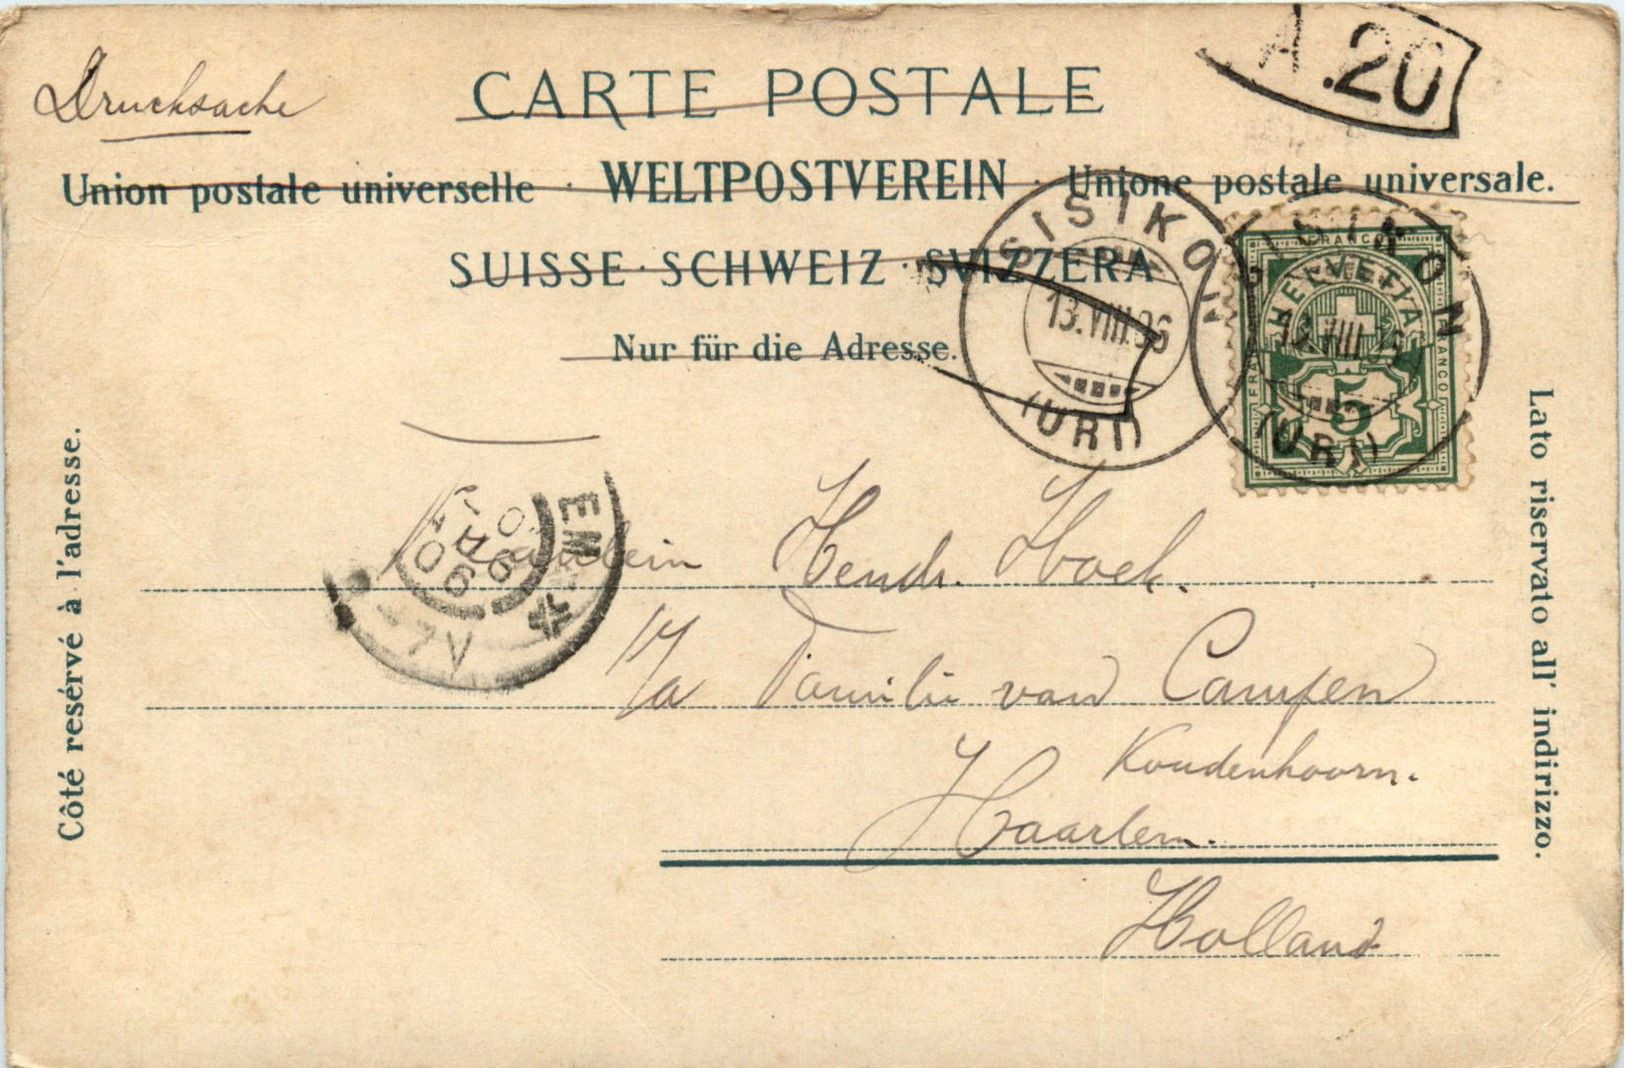 Drucksache
CARTE POSTALE
A.20
Union postale universelle · WELTPOSTVEREIN · Unione postale universale.
SUISSE · SCHWEIZ · SVIZZERA
Nur für die Adresse.
SISIKON
13.VIII.96
(URI)
SISIKON
VIII
(URI)
FRANCO
HELVETIA
FRANCO
FRANCO
5
Côté resérvé à l'adresse.
Lato riservato all' indirizzo.
Fräulein Hendr. Hoek.
p/a Familie van Campen
Koudenhoorn.
Haarlem.
Holland